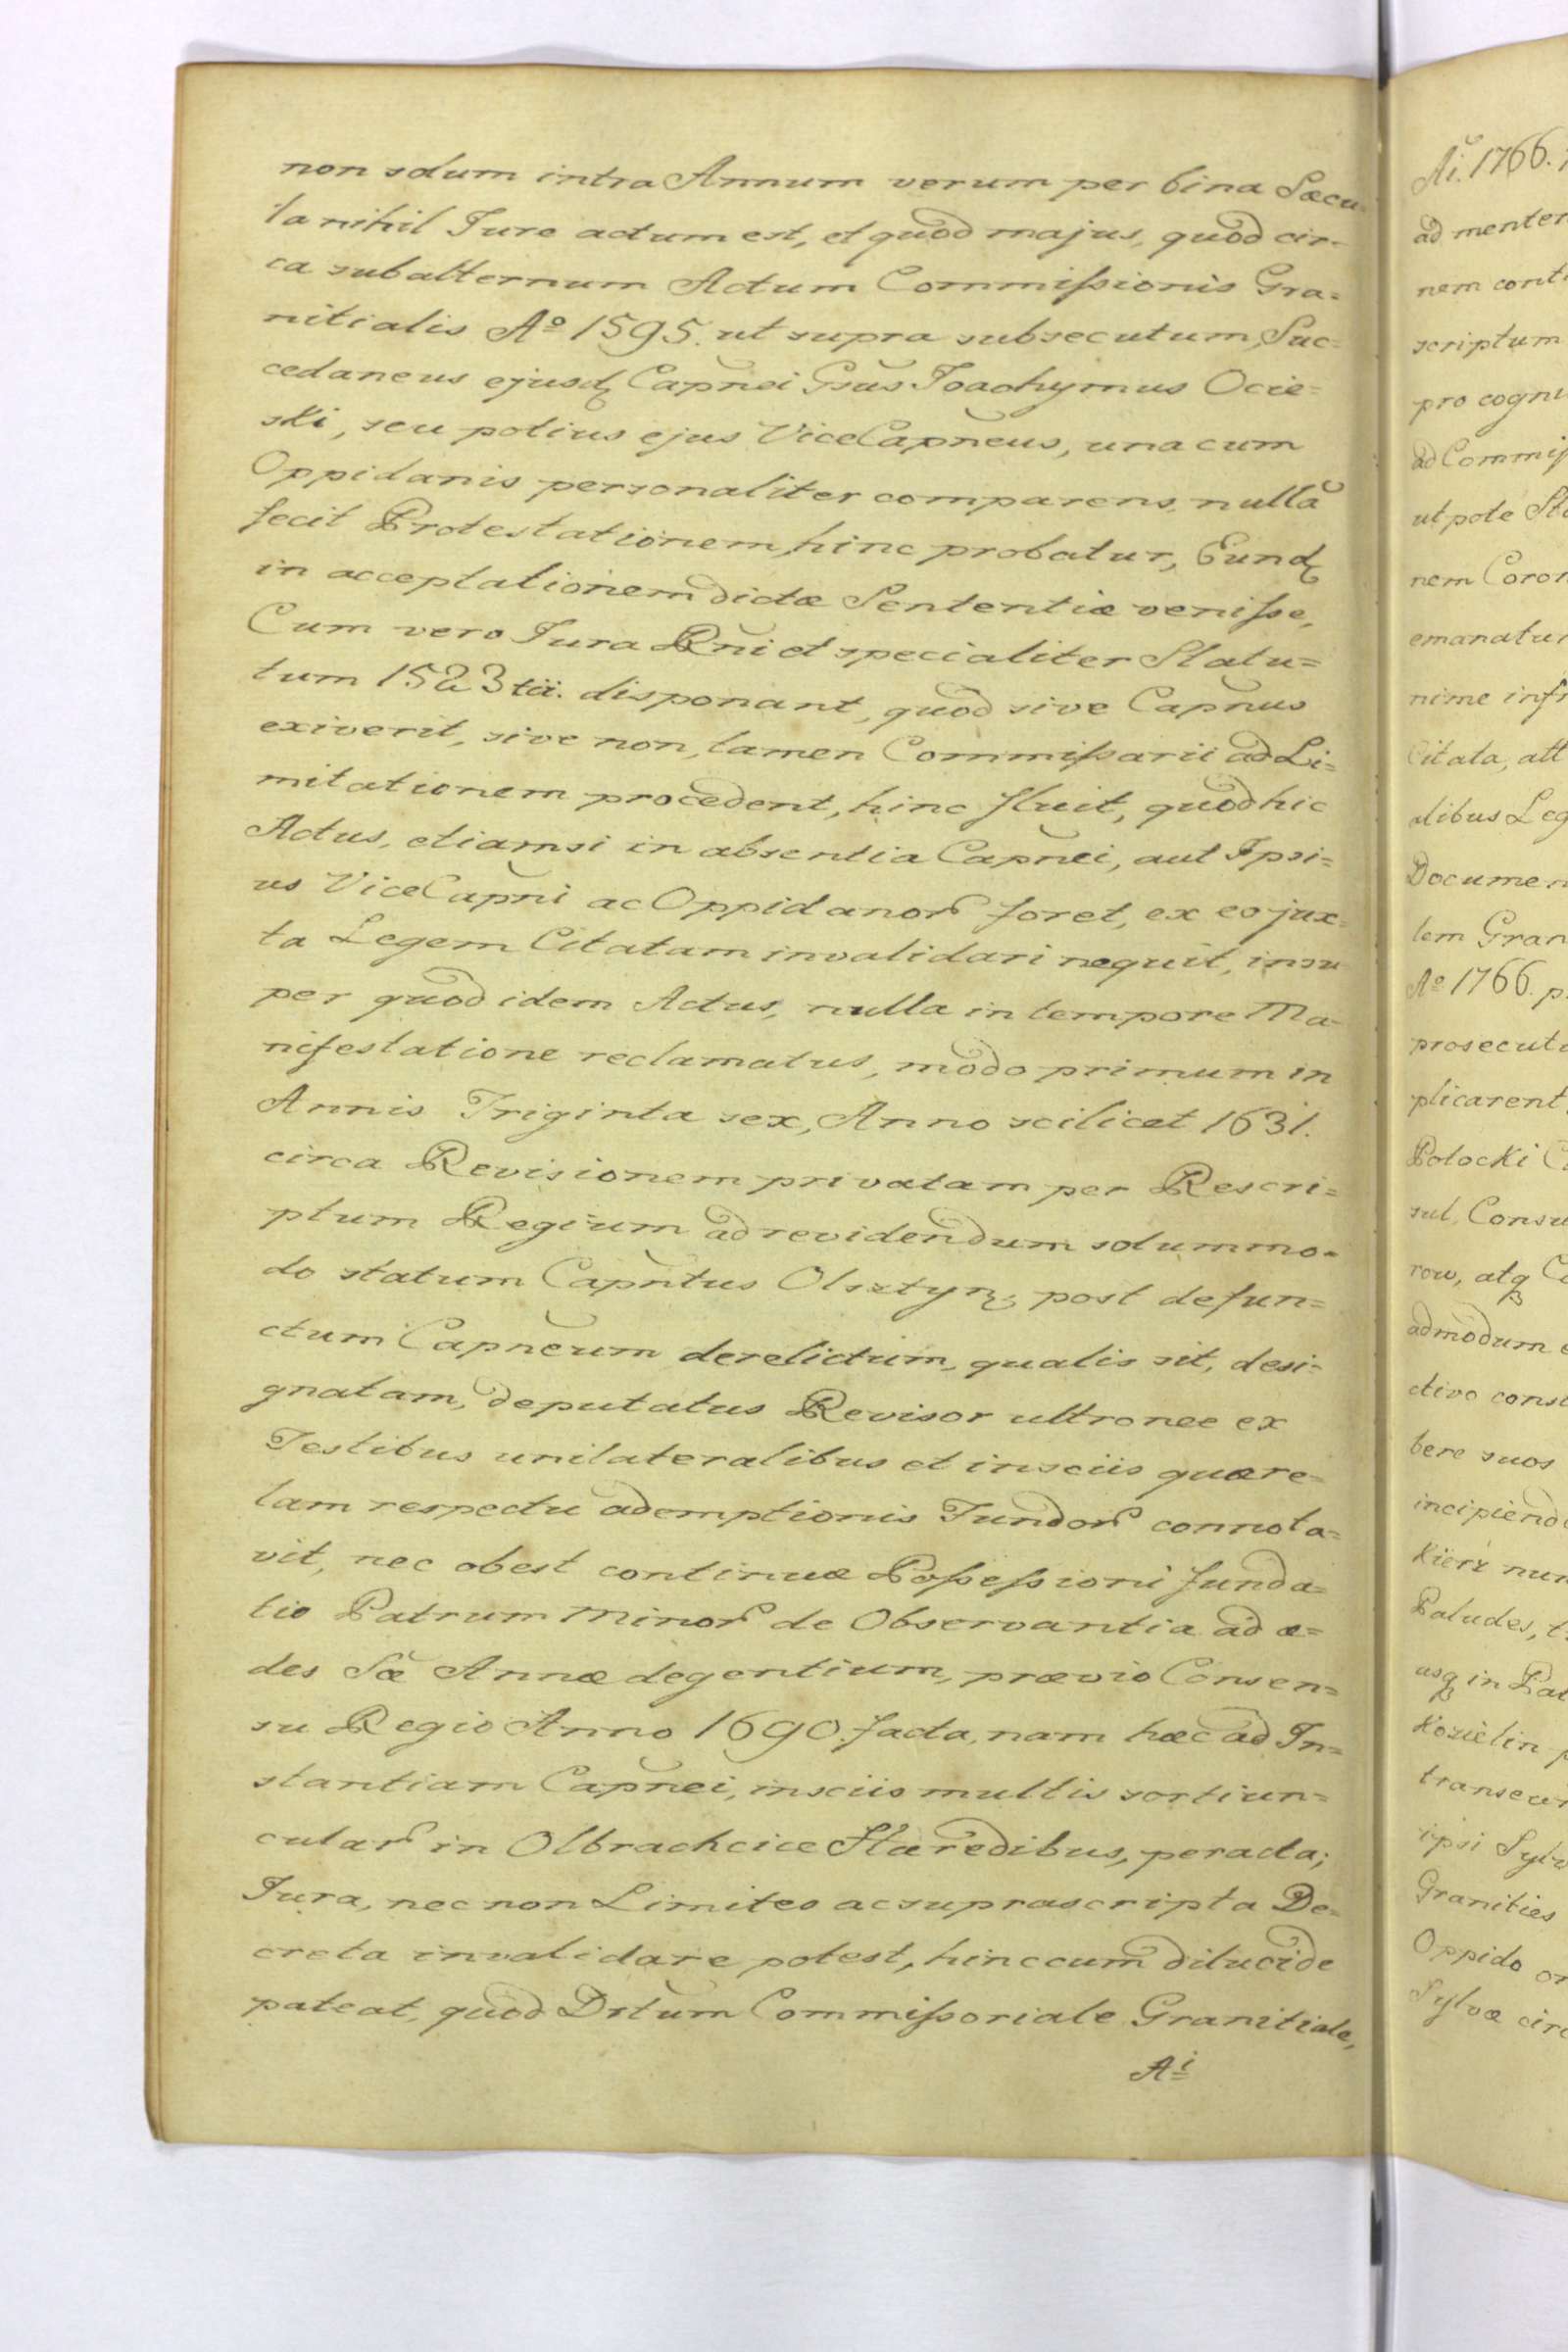 non solum intra Annum verum per bina Sæcu-
la nihil Jure actum est, et quod majus, quod cir-
ca subalternum Actum Commissionis Gra=
nitialis Aº 1595. ut supra subsecutum, Suc=
cedaneus ejusd Capnei Gsus Joachymus Ocie=
ski, seu potius ejus ViceCapneus, una cum
Oppidanis personaliter comparens, nullã
fecit Protestationem, hinc probatur, Eund
in acceptationem dictæ Sententiæ venisse,
Cum vero Jura Rni et specialiter Statu=
tum 1523 tii. disponant, quod sive Capnus
exiverit, sive non, tamen Commissarii ad Li=
mitationem procedent, hinc fluit, quod hic
Actus, etiamsi in absentia Capnei, aut Ipsi=
us ViceCapni ac Oppidanor foret, ex eo jux=
ta Legem Citatam invalidari nequit, insu
per quod idem Actus, nulla in tempore Ma-
nifestatione reclamatus, modo primum in
Annis Triginta sex, Anno scilicet 1631.
circa Revisionem privatam per Rescri=
ptum Regium ad revidendum solummo=
do statum Capntus Olsztyn, post defun=
ctum Capneum derelictum, qualis sit, desi=
gnatam, deputatus Revisor ultronee ex
Testibus unilateralibus et insciis quære-
lam respectu ademptionis Fundor connota=
vit, nec obest continuæ Possessioni funda=
tio Patrum Minor de Observantia ad æ=
des Sæ Annæ degentium, prævio Consen=
su Regio Anno 1690. facta, nam hæc ad In=
stantiam Capnei, insciis multis sortiun=
cular in Olbrachcice Hæredibus, peracta;
Jura, nec non Limites ac suprascripta De=
creta invalidare potest, hinc cum dilucide
pateat, quod Dstum Commissoriale Granitiale,
Ai
Ai. 1766.
ad menter
nem cont
scriptum
pro cogni
ad Commis
ut pote Sta
nem Coron
emanatur
nime infr
Citata, att
alibus Leg
Documen
tem Gran
Aº 1766. p
prosecuta
plicarent
Potocki C
sul, Consu
row, atq Ca
admodum e
ctivo const
bere suos
incipiendo
Kierz nun
Paludes, t
usq in Pal
Kozielin p
transeun
ipsi Sylv
Granities
Oppido or
Sylvæ circ